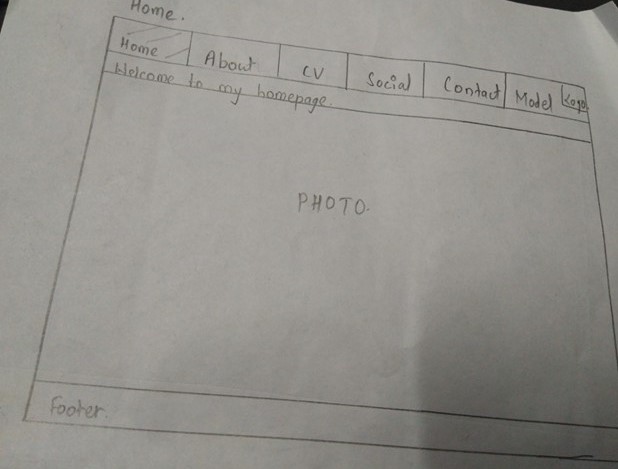 Home.
Home About CV Social Contact Model Logo
Welcome to my homepage.
PHOTO.
Footer.